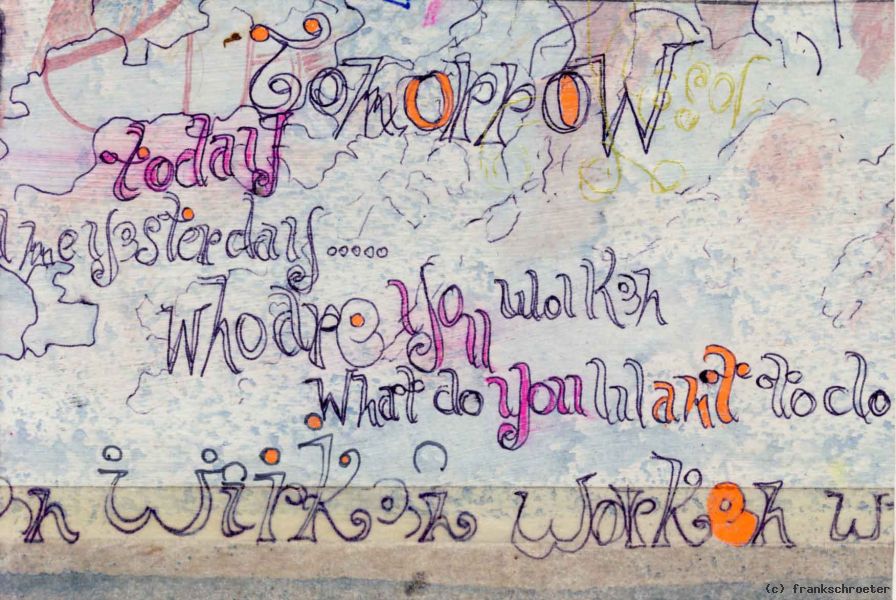 Tomorrow
today
me yesterday.....
who are you
What do you want to do
wirken worken w
(c) frankschroeter